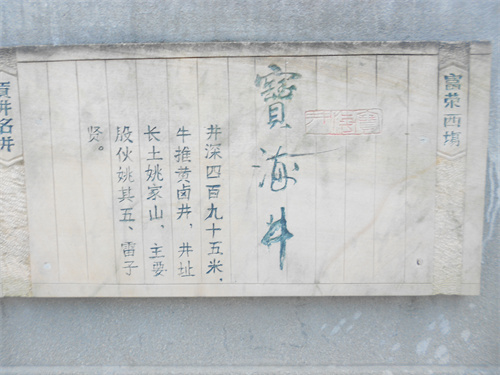 富荣西场
寶海井
井深四百九十五米、
牛推黄卤井，井址
长土姚家山、主要
股伙姚其五、雷子
贤。
贡井名井